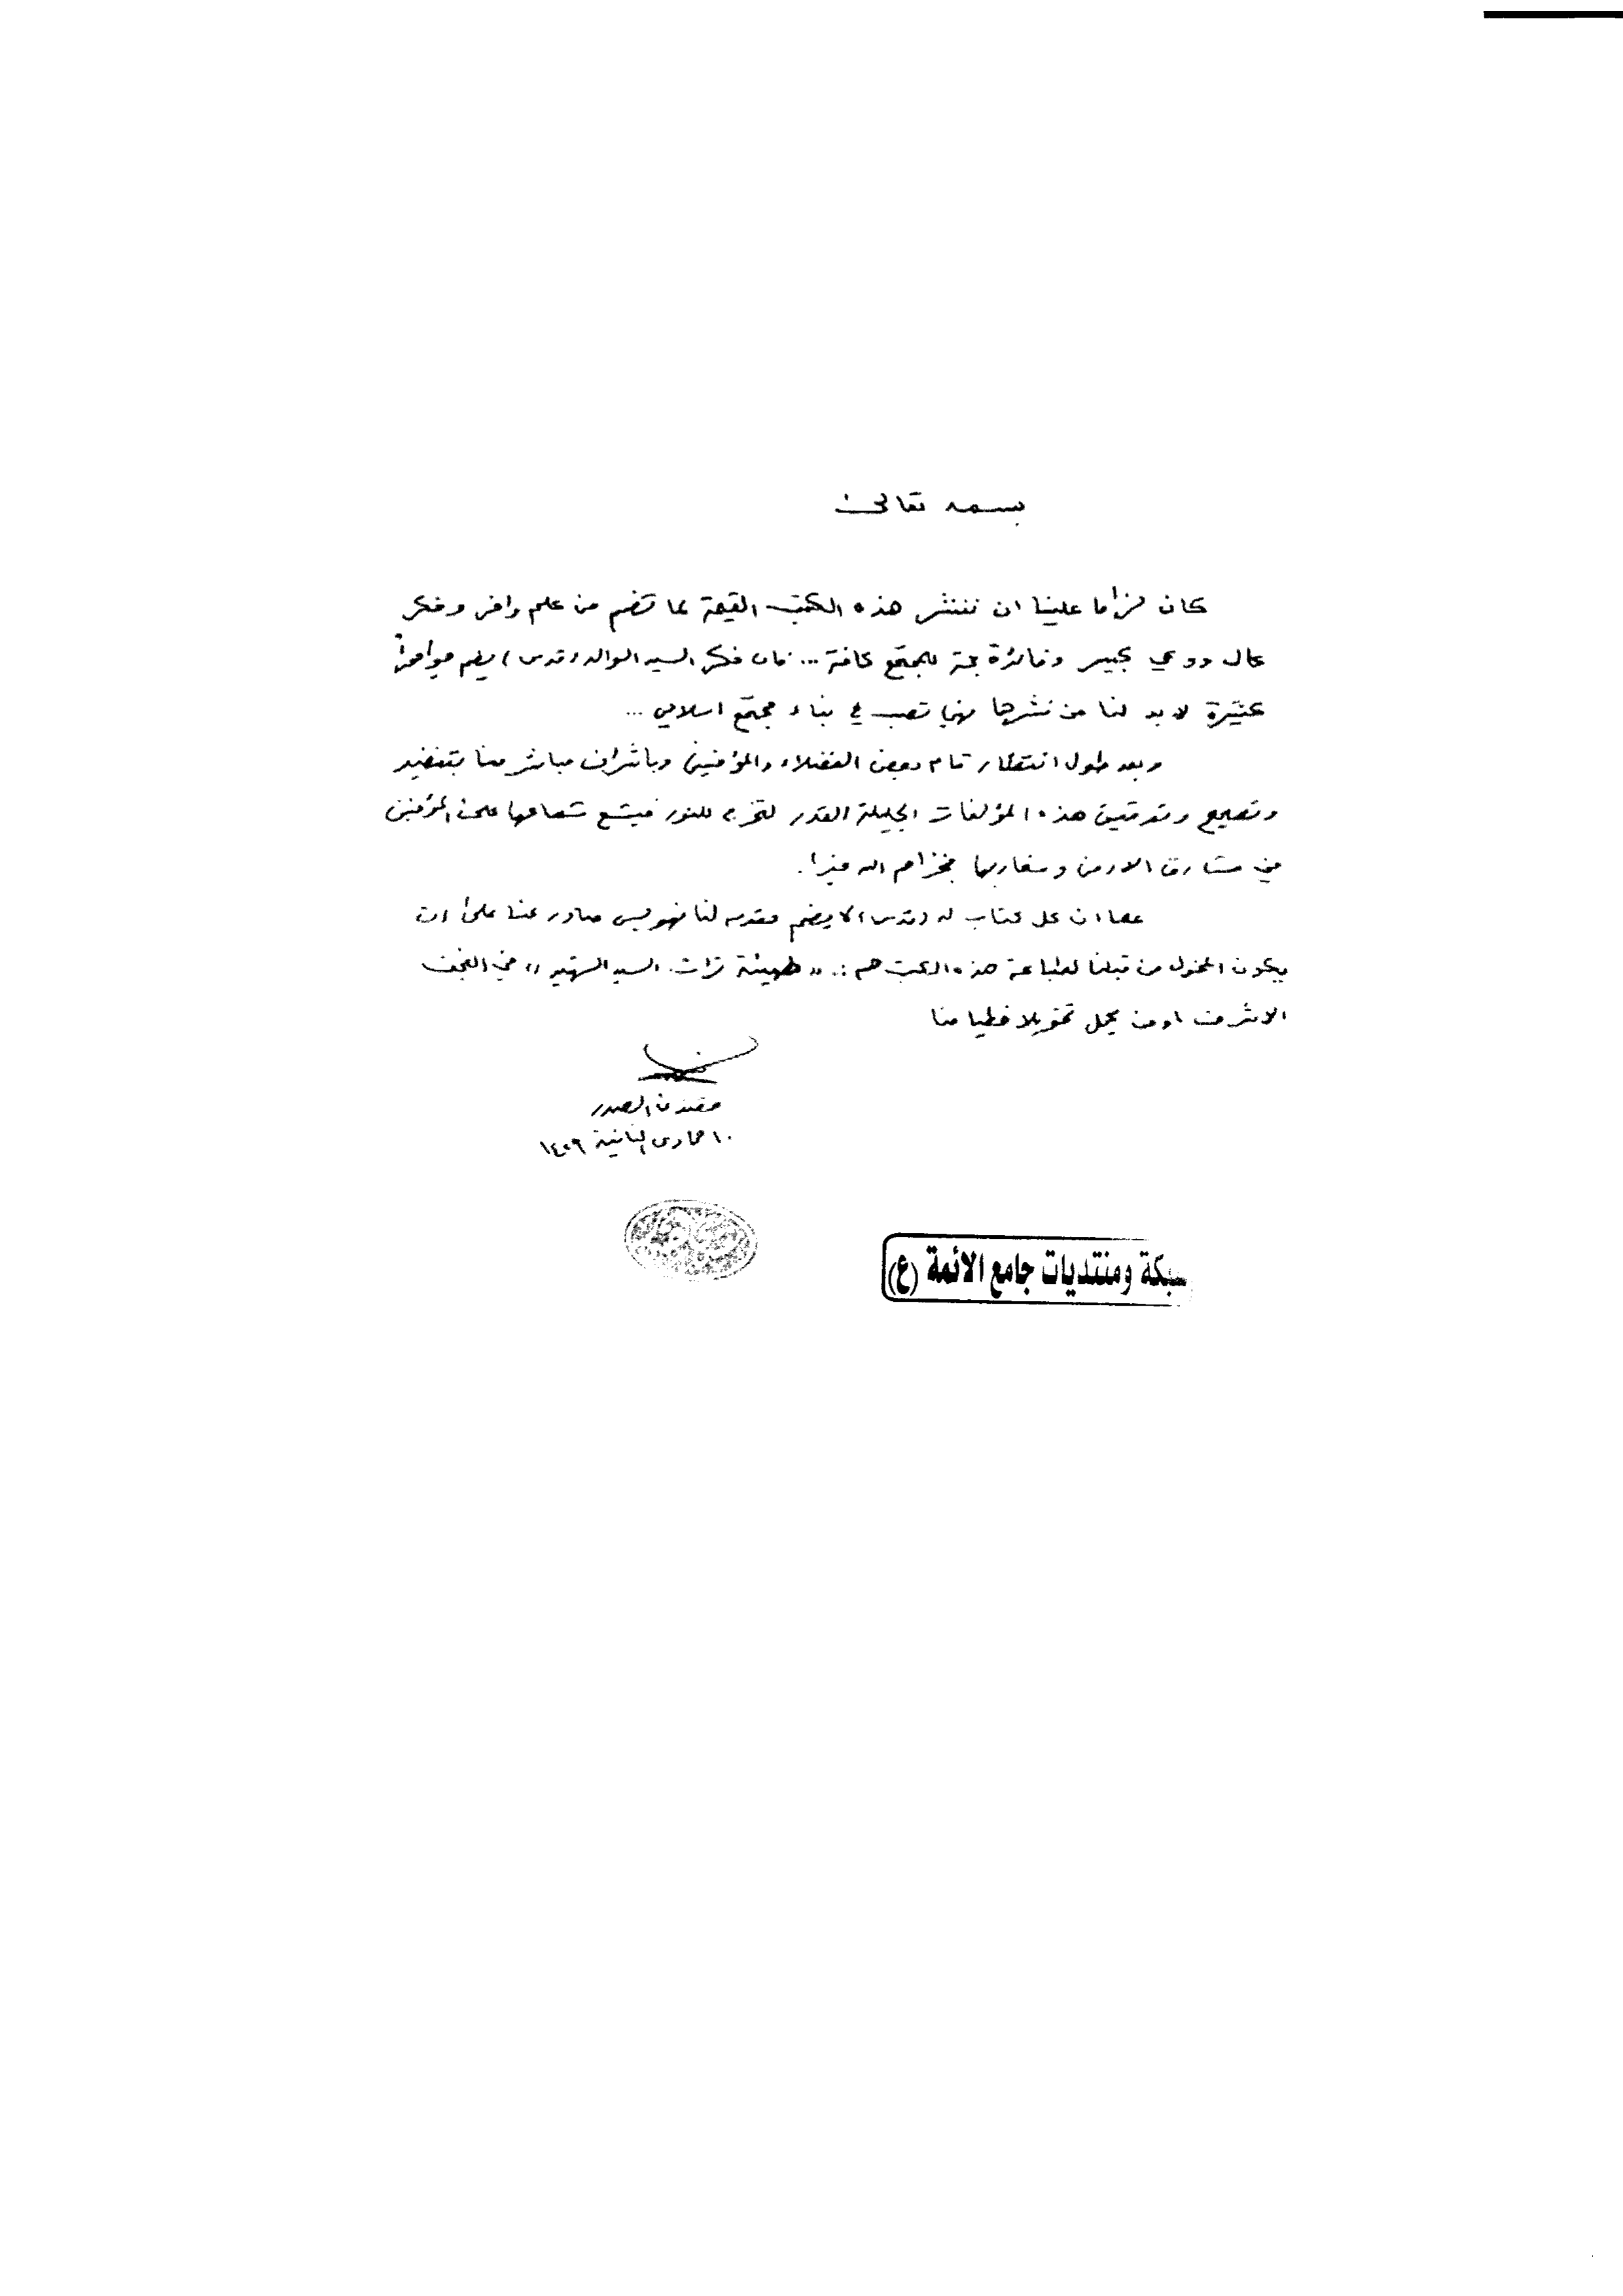 بسمه تعالى
كان لزاما علينا ان ننشر هذه الكتب القيمة لما تضم من علم وافر وفكر
عال ووعي كبير وفائدة جمة للمجتمع كافة ... فان فكر السيد الوالد (قدس) يضم مواضيع
كثيرة لا بد لنا من نشرها فهي تصب في بناء مجتمع اسلامي ...
وبعد طول انتظار قام بعض الفضلاء والمؤمنين وباشراف مباشر منا بتنضيد
وتصحيح وتدقيق هذه المؤلفات الجليلة القدر لتخرج للنور فيشع شعاعها على المؤمنين
في مشارق الارض ومغاربها فجزاهم الله خيرا.
علما ان كل كتاب له (قدس) لا يضم مقدمه لنا فهو ليس صادر عنا على ان
يكون المخول من قبلنا لطباعة هذه الكتب هم :. " هيئة تراث السيد الشهيد " في النجف
الاشرف او من يحمل تخويلا خطيا منا
مقتدى الصدر
١٠ جمادى الثانية ١٤٢٩
شبكة ومنتديات جامع الائمة (ع)